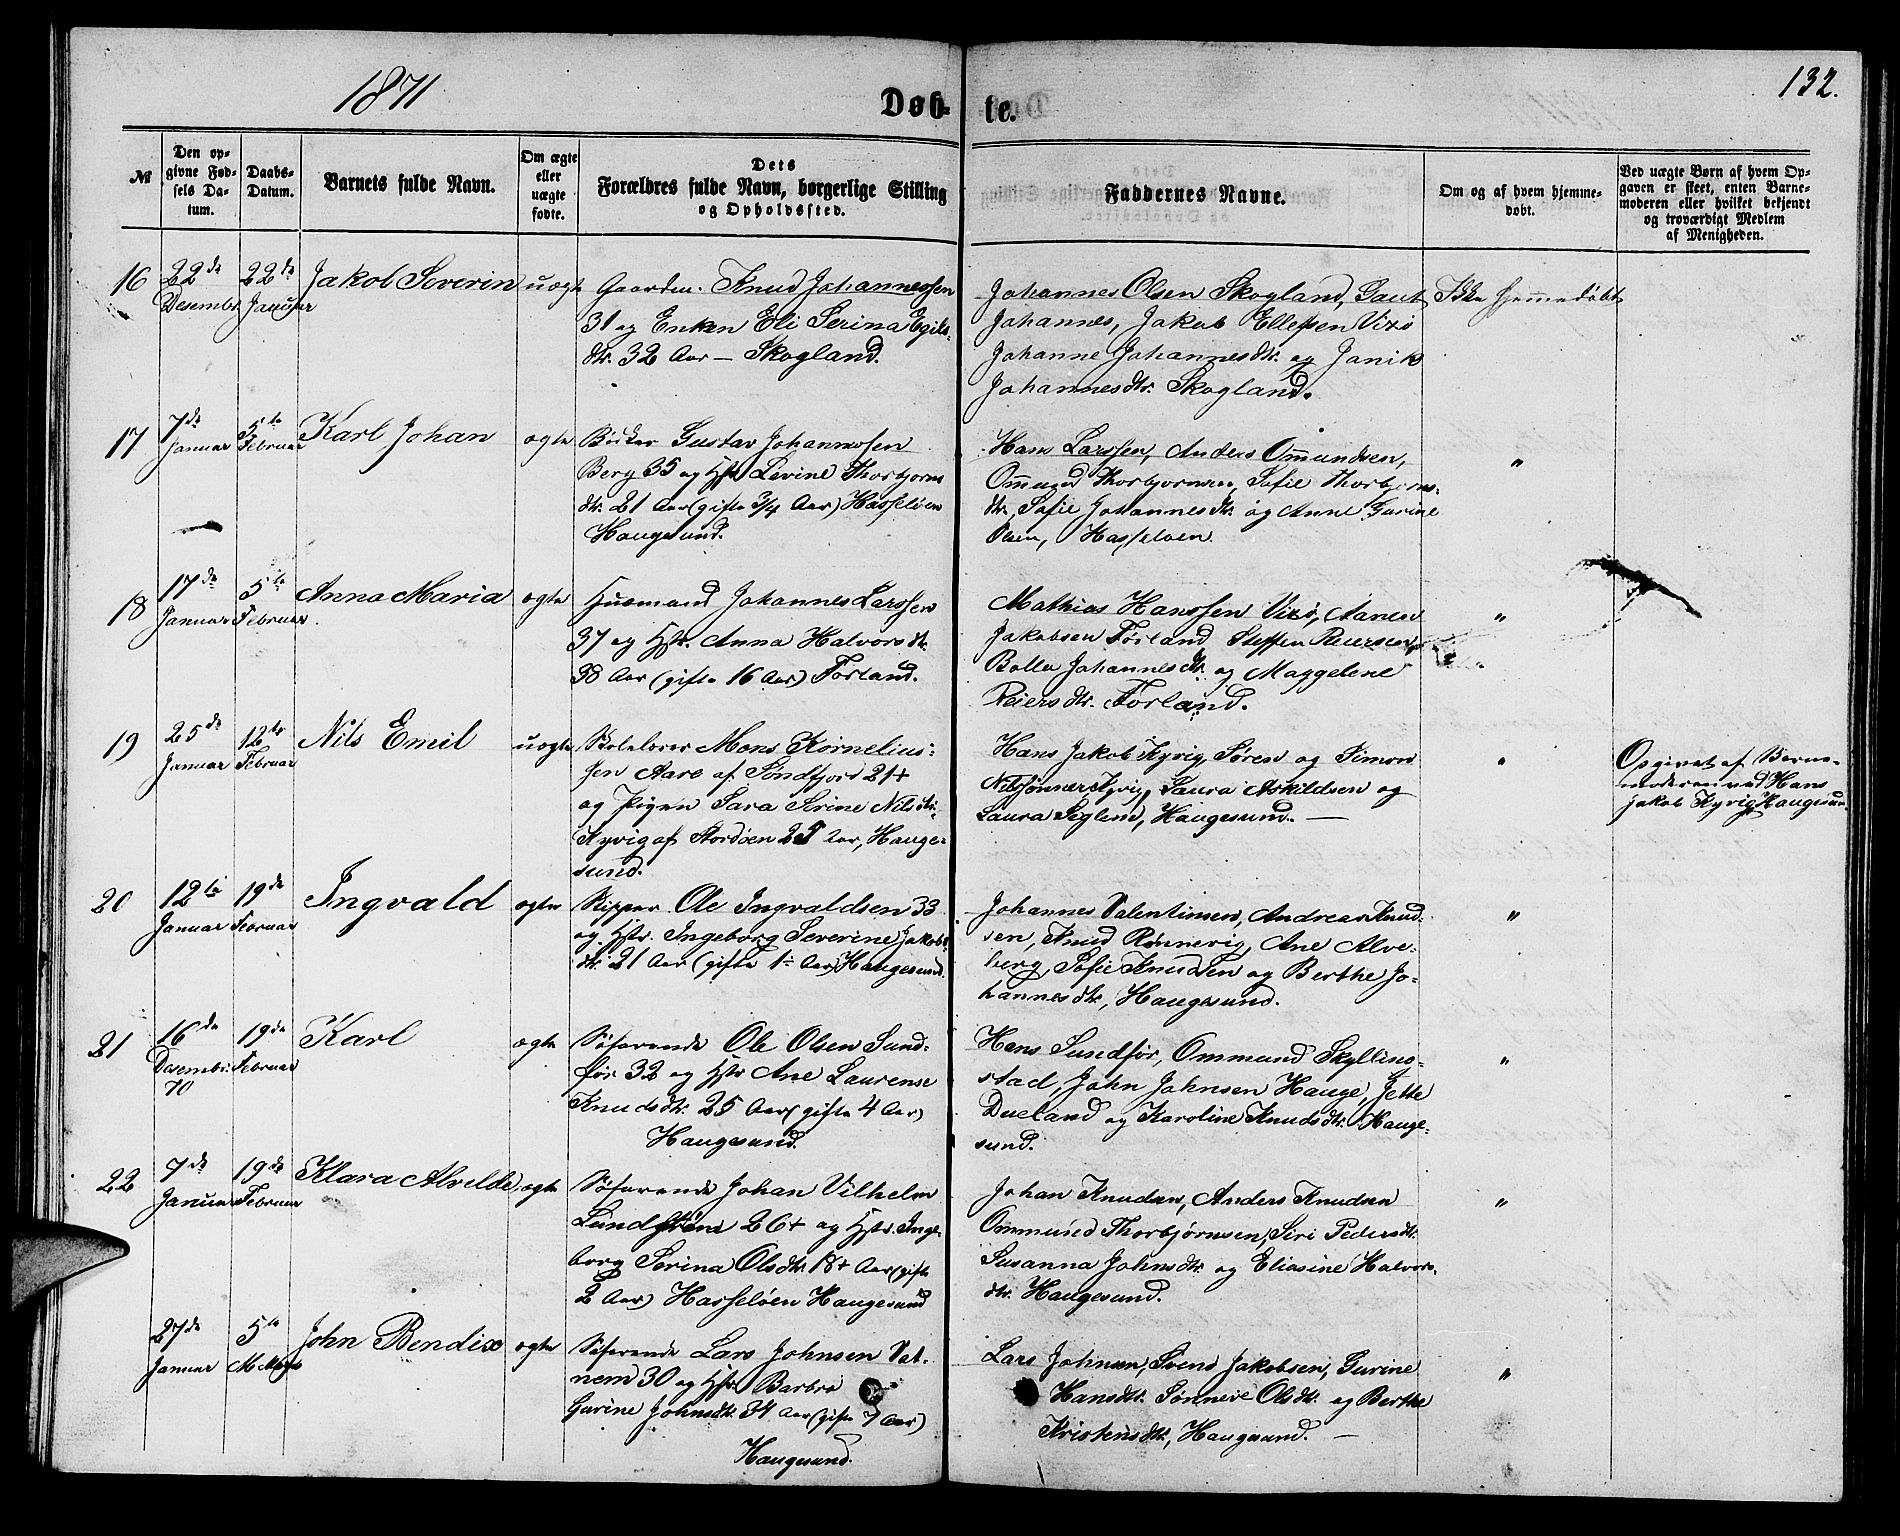 1871
Døb-
te.
132.
№
Den op-
givne Fød-
sels Da-
tum.
Daabs-
Datum.
Barnets fulde Navn.
Om ægte
eller
uægte
fødte.
Dets
Forældres fulde Navn, borgerlige Stilling
og Opholdssted.
Faddernes Navne.
Om og af hvem hjemme-
døbt.
Ved uægte Børn af hvem Op-
gaven er skeet, enten Barne-
moderen eller hvilket bekjendt
og troværdigt Medlem
af Menigheden.
16
22de
Desembr
22de
Januar
Jakob Severin
uægte
Gaardm. Knud Johannessen
31 og Enken Eli Serina Egils-
dtr. 32 Aar — Skogland.
Johannes Olsen Skogland, Gaut
Johannes, Jakob Ellefsen Vixø
Johanne Johannesdtr. og Janik
Johannesdtr. Skogland.
Ikke hjemmedøbt
17
7de
Januar
5te
Februar
Karl Johan
ægte
Bødker Gustav Johannessen
Berg 35 og Hstr. Levine Thorbjørns
dtr. 21 Aar (gifte 3/4 Aar) Hasseløen
Haugesund.
Hans Larssen, Anders Ommundsen,
Ommund Thorbjørnsen, Sofie Thorbjørns-
dtr, Sofie Johannesdtr. og Anne Gurine
Olsen, Hasseløen.
"
18
17de
Januar
5te
Februar
Anna Maria
ægte
Husmand Johannes Larssen
37 og Hstr. Anna Halvorsdtr.
38 Aar (gifte 16 Aar) Førland.
Mathias Hanssen Vixø, Aanen
Jakobsen Førland Steffen Reiersen
Bolla Johannesdtr. og Maggelene
Reiersdtr. Førland.
"
19
25de
Januar
12te
Februar
Nils Emil
uægte
Skolelærer Mons Kornelius-
sen Aare af Søndfjord 21+
og Pigen Sara Serine Nilsdtr.
Kyvig af Stordøen 25 Aar, Hauge-
sund.
Hans Jakob Kyvig, Søren og Simon
Nilssønner Kyvig, Laura Askildsen og
Laura Seglem, Haugesund. —
"
Opgivet af Barne-
moderen ved Hans
Jakob Kyvig Haugesund
20
12te
Januar
19de
Februar
Ingvald
ægte
Skipper Ole Ingvaldsen 33
og Hstr. Ingeborg Severine Jakobs-
dtr. 21 Aar (gifte 1 Aar) Haugesund.
Johannes Valentinsen, Andreas Knud-
sen, Knud Rønnevig, Ane Alve-
berg, Sofie Knudsen og Berthe Jo-
hannesdtr, Haugesund.
"
21
16de
Desembr.
70
19de
Februar
Karl
ægte
Søfarende Ole Olsen Sund-
før 32 og Hstr Ane Laurense
Knudsdtr. 25 Aar (gifte 4 Aar)
Haugesund.
Hans Sundfør, Ommund Skylling-
stad, John Johnsen Hauge, Jette
Dueland og Karoline Knudsdtr. Hauge-
sund.
"
22
7de
Januar
19de
Februar
Klara Alvilde
ægte
Søfarende Johan Vilhelm
Lundstrøm 26+ og Hstr. Inge-
borg Serina Olsdtr. 18+ Aar (gifte
2 Aar) Hasseløen Haugesund
Johan Knudsen, Anders Knudsen
Ommund Thorbjørnsen, Siri Pedersdtr.
Susanna Johnsdtr. og Eliasine Halvors-
dtr. Haugesund.
"
27de
Januar
5te
Marts
John Bendix
ægte
Søfarende Lars Johnsen Vat-
nem 30 og Hstr Barbra
Gurine Johnsdtr. 34 Aar (gifte 7 Aar)
Haugesund.
Lars Johnsen, Svend Jakobsen, Gurine
Hansdtr. Sønneve Olsdtr. og Berthe
Kristensdtr, Haugesund. —
"